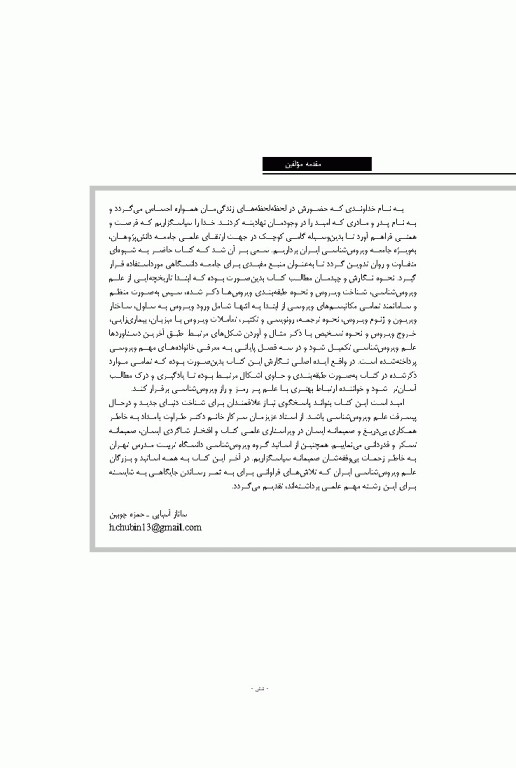 مقدمه مؤلفین
به نام خداوندی که حضورش در لحظه‌لحظه‌های زندگی‌مان همواره احساس می‌گردد و
به نام پدر و مادری که امید را در وجودمان نهادینه کردند. خدا را سپاسگزاریم که فرصت و
همتی فراهم آورد تا بدین‌وسیله گامی کوچک در جهت ارتقای علمی جامعه دانش‌پژوهان،
به‌ویژه جامعه ویروس‌شناسی ایران برداریم. سعی بر آن شد که کتاب حاضر به شیوه‌ای
متفاوت و روان تدوین گردد تا به‌عنوان منبع مفیدی برای جامعه دانشگاهی مورداستفاده قرار
گیرد. نحوه نگارش و چیدمان مطالب کتاب بدین‌صورت بوده که ابتدا تاریخچه‌ایی از علم
ویروس‌شناسی، شناخت ویروس و نحوه طبقه‌بندی ویروس‌ها ذکر شده، سپس به‌صورت منظم
و سامانمند تمامی مکانیسم‌های ویروسی از ابتدا به انتها شامل ورود ویروس به سلول، ساختار
ویریون و ژنوم ویروس، نحوه ترجمه، رونویسی و تکثیر، تعاملات ویروس با میزبان، بیماری‌زایی،
خروج ویروس و نحوه تشخیص با ذکر مثال و آوردن شکل‌های مرتبط طبق آخرین دستاوردها
علم ویروس‌شناسی تکمیل شود و در سه فصل پایانی به معرفی خانواده‌های مهم ویروسی
پرداخته‌شده است. در واقع ایده اصلی نگارش این کتاب بدین‌صورت بوده که تمامی موارد
ذکرشده در کتاب به‌صورت طبقه‌بندی و حاوی اشکال مرتبط بوده تا یادگیری و درک مطالب
آسان‌تر شود و خواننده ارتباط بهتری با علم پر رمز و راز ویروس‌شناسی برقرار کند.
امید است این کتاب بتواند پاسخگوی نیاز علاقمندان برای شناخت دنیای جدید و درحال
پیشرفت علم ویروس‌شناسی باشد. از استاد عزیزمان سرکار خانم دکتر طراوت بامداد به خاطر
همکاری بی‌دریغ و صمیمانه ایشان در ویراستاری علمی کتاب و افتخار شاگردی ایشان، صمیمانه
تشکر و قدردانی می‌نماییم. همچنین از اساتید گروه ویروس‌شناسی دانشگاه تربیت مدرس تهران
به خاطر زحمات بی‌وقفه‌شان صمیمانه سپاسگزاریم. در آخر این کتاب به همه اساتید و بزرگان
علم ویروس‌شناسی ایران که تلاش‌های فراوانی برای به ثمر رساندن جایگاهی به شایسته
برای این رشته مهم علمی برداشته‌اند، تقدیم می‌گردد.
ساناز آسیایی - حمزه چوبین
h.chubin13@gmail.com
- شش -